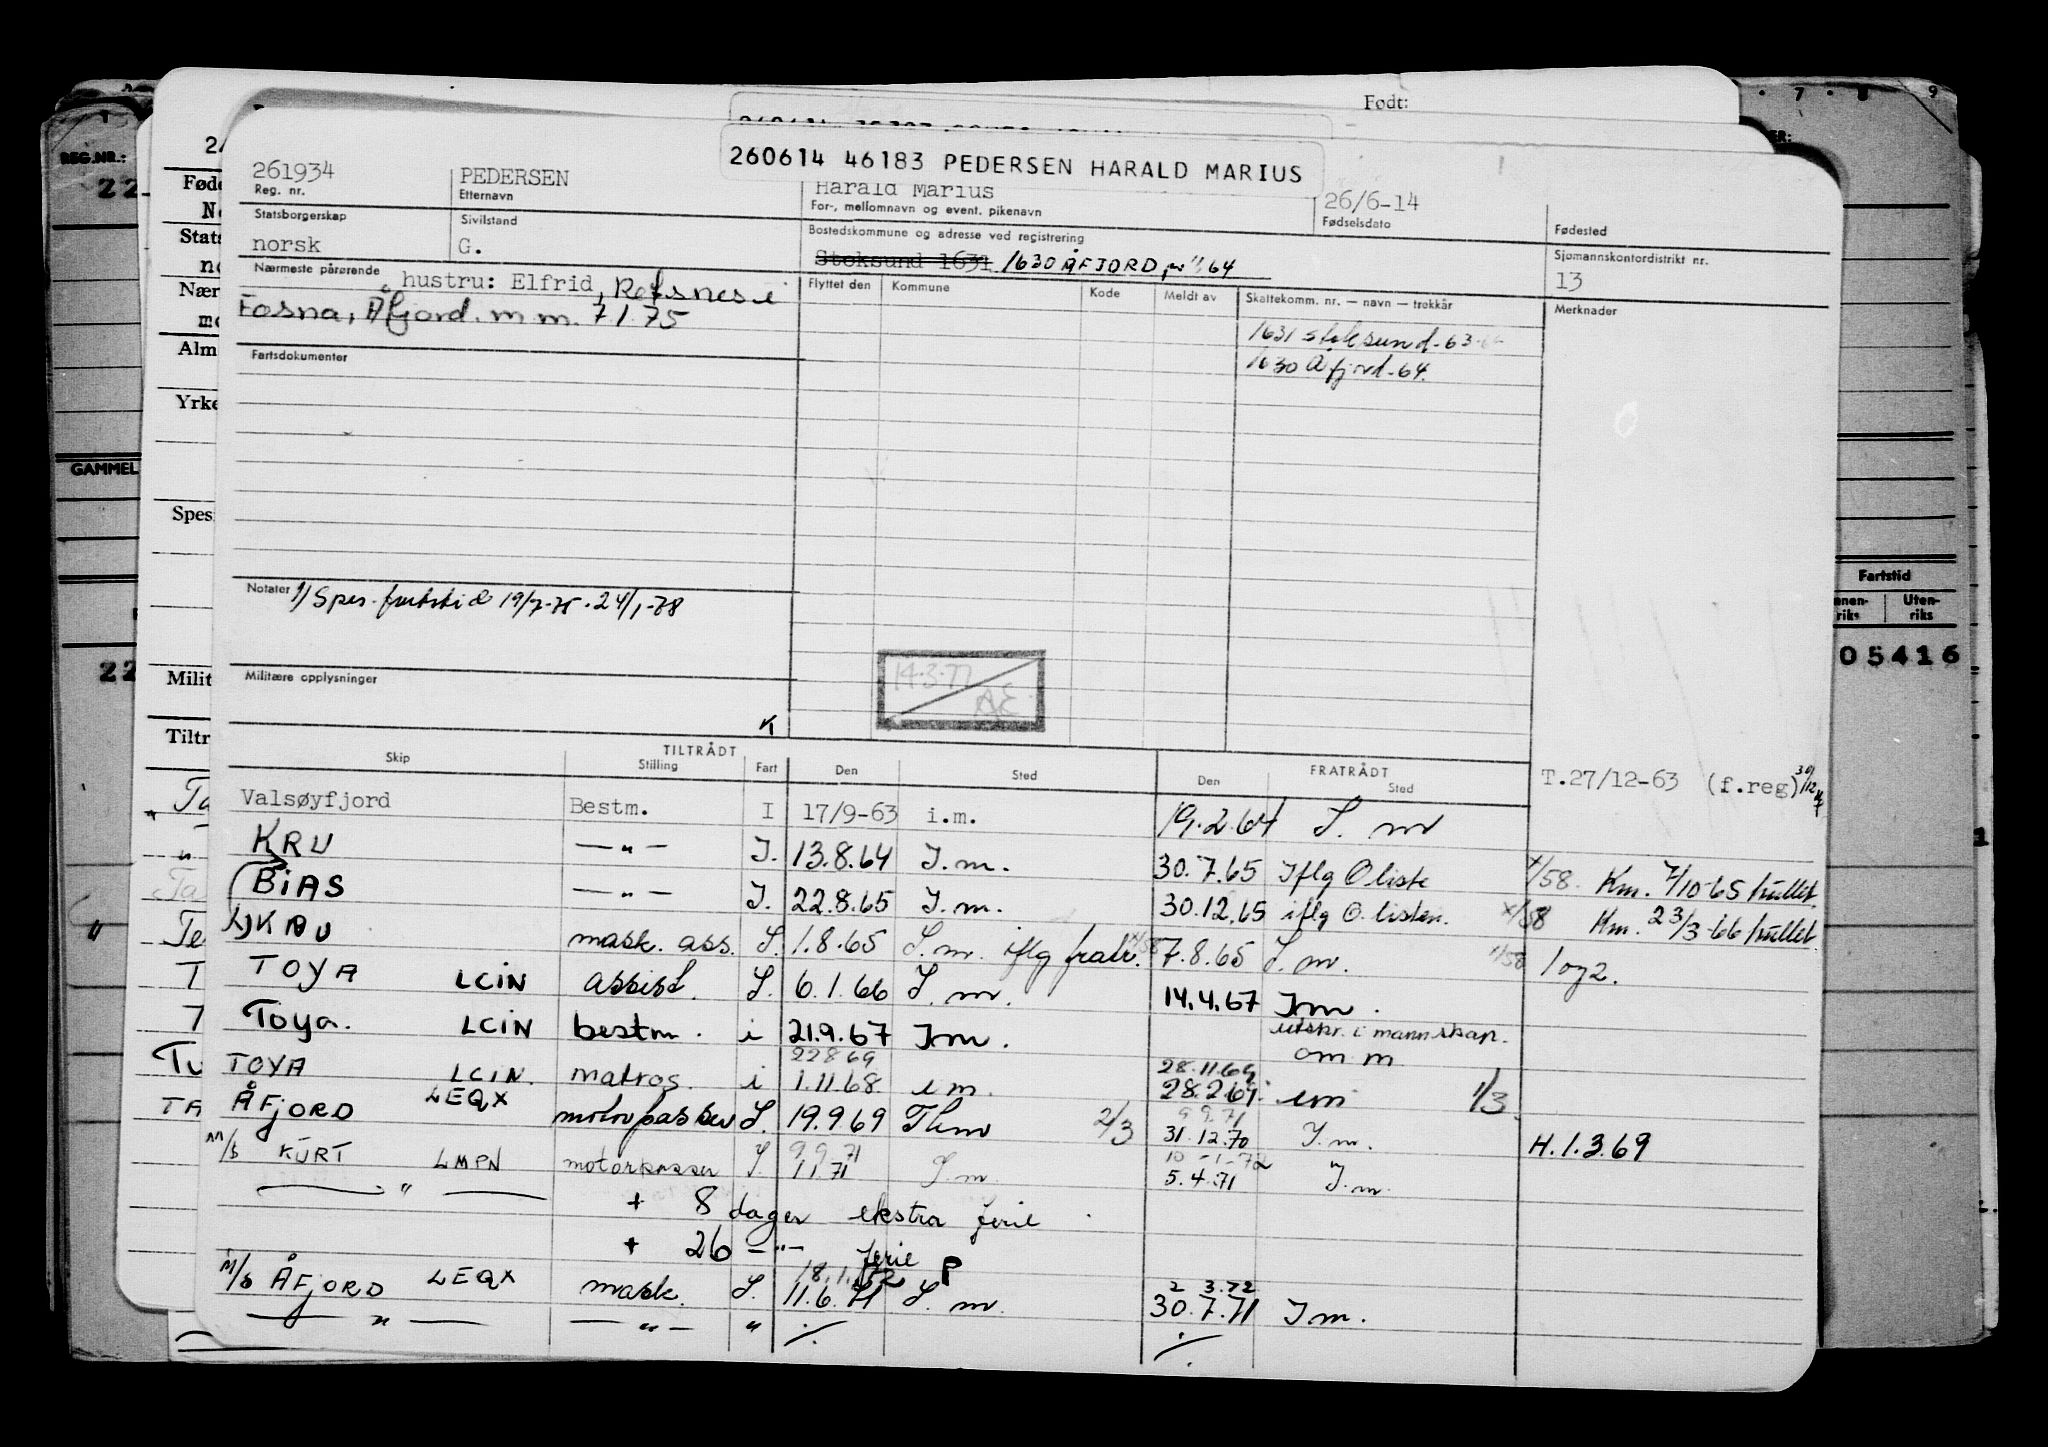 Født:
260614 46183 PEDERSEN HARALD MARIUS
261934 PEDERSEN Harald Marius 26/6-14
Reg. nr. Etternavn For-, mellomnavn og event. pikenavn Fødselsdato Fødested
Statsborgerskap Sivilstand Bostedskommune og adresse ved registrering Sjømannskontordistrikt nr.
norsk G. Stoksund 1631 1630 ÅFJORD, 64 13
Nærmeste pårørende hustru: Elfrid, Refsnes i Flyttet den Kommune Kode Meldt av Skattekomm. nr. — navn — trekkår Merknader
Fosna, Åfjord. m.m. 7.1.75
1631 Stoksund-63
1630 Åfjord-64.
Fartsdokumenter
Notater 1/ Spes. fartstid 19/7-75-24/1-78
Militære opplysninger
14.3.77
AE
K
TILTRÅDT FRATRÅDT
Skip Stilling Fart Den Sted Den Sted
T.27/12-63 (f.reg)
Valsøyfjord Bestm. I 17/9-63 i.m. 19.2.64 S. m
KRU — " — I. 13.8.64 I.m. 30.7.65 Iflg O liste x/58. Km. 7/10-65 hullet.
BIAS — " — I. 22.8.65 I.m. 30.12.65 iflg O. listen. x/58 Km. 23/3-66 hullet.
KRU mask. ass. S. 1.8.65 S.m. iflg fratr. 7.8.65 S.m. x/58 1 og 2.
TOYA LCIN assist. S. 6.1.66 S.m. 14.4.67 I.m.
Toya. LCIN bestm. i 21.9.67 I.m. utskr. i mannskap.
22 8 69 om m 28.11.69
TOYA LCIN. matros. i 1.11.68 i m. 28.2.69. i m 1/3.
ÅFJORD LEQX motorpasser S. 19.9.69 Thm 2/3 9 9.71 31.12.70 I.m. H.1.3.69
M/S KURT LMPN motorpasser S. 9 9 71 1.1.71 S.m. 10-1-72 5.4.71 I.m.
— " —
+ 8 dager ekstra ferie
+ 26 — " — ferie P
M/S ÅFJORD LEQX mask. S. 18.1.72 11.6.71 S.m. 2 3.72 30.7.71 I.m.
— " — — " — " ./. ./.
REG.NR.:
GAMMEL
Fartstid
Uten-
riks
05416